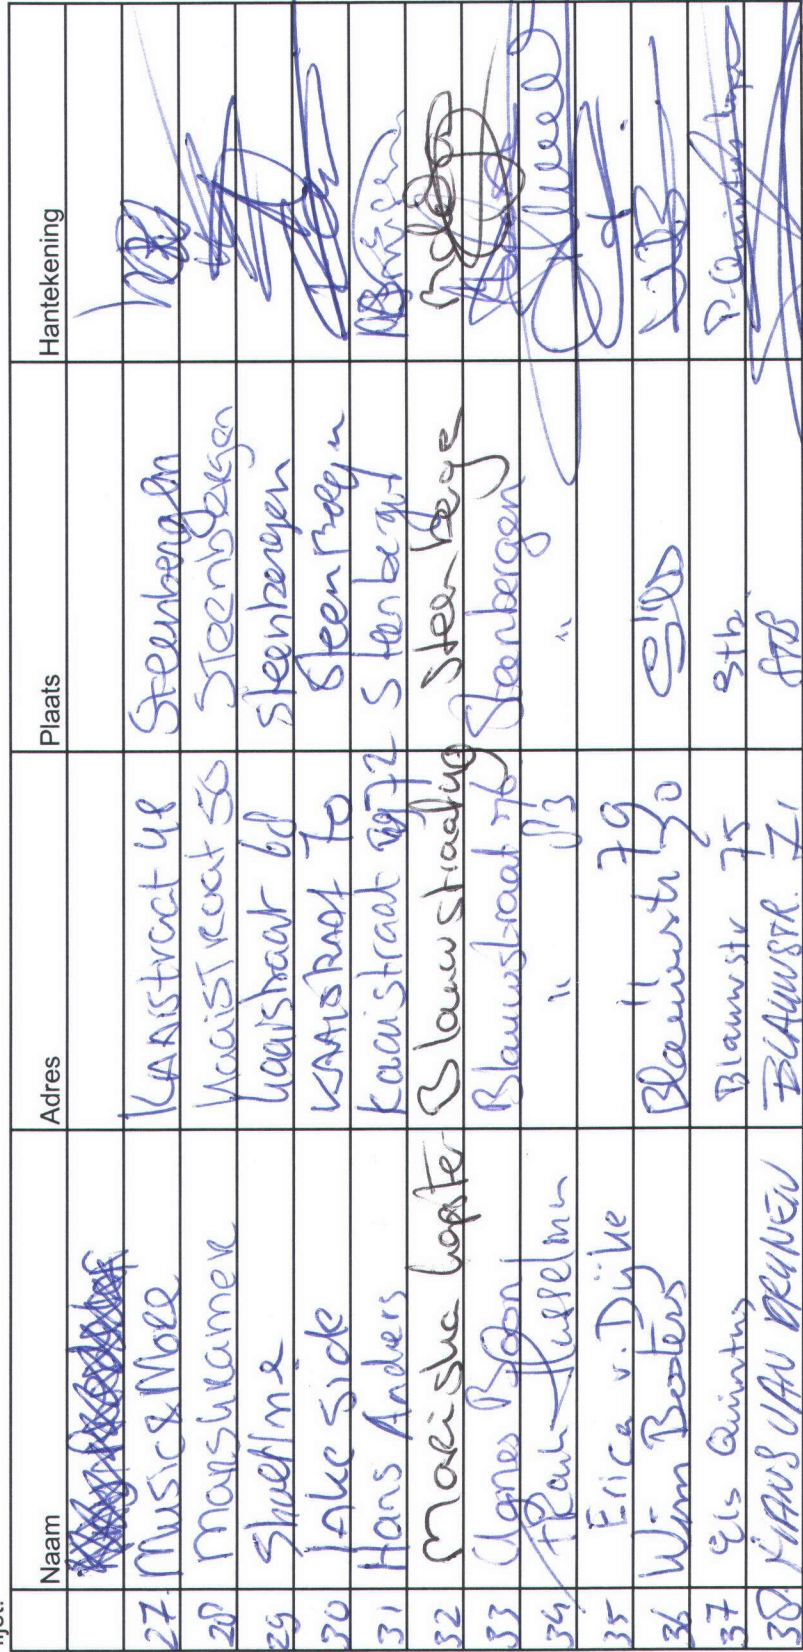 Naam Adres Plaats Hantekening
27. Music & More KAAistraat 48 Steenbergen
28 Manskramer KaaiSTRaat 50 Steenbergen
29 Shoetime kaaistraat 68 Steenbergen
30 Lake Side KAAISTRAAT 70 Steenbergen
31 Hans Anders Kaaistraat 72 Steenbergen
32 Marisha Blauwstraat Steenbergen
33 Agnes Boon Blauwstraat 76 Steenbergen
34 Frank Husselman " 83 "
35 Erica v. Dijke " 79
36 Wim Booters Blauwstr 30
37 Els Quintus Blauwstr 75 Stb.
38. HANS VAN DRUNEN BLAUWSTR. 71 STB